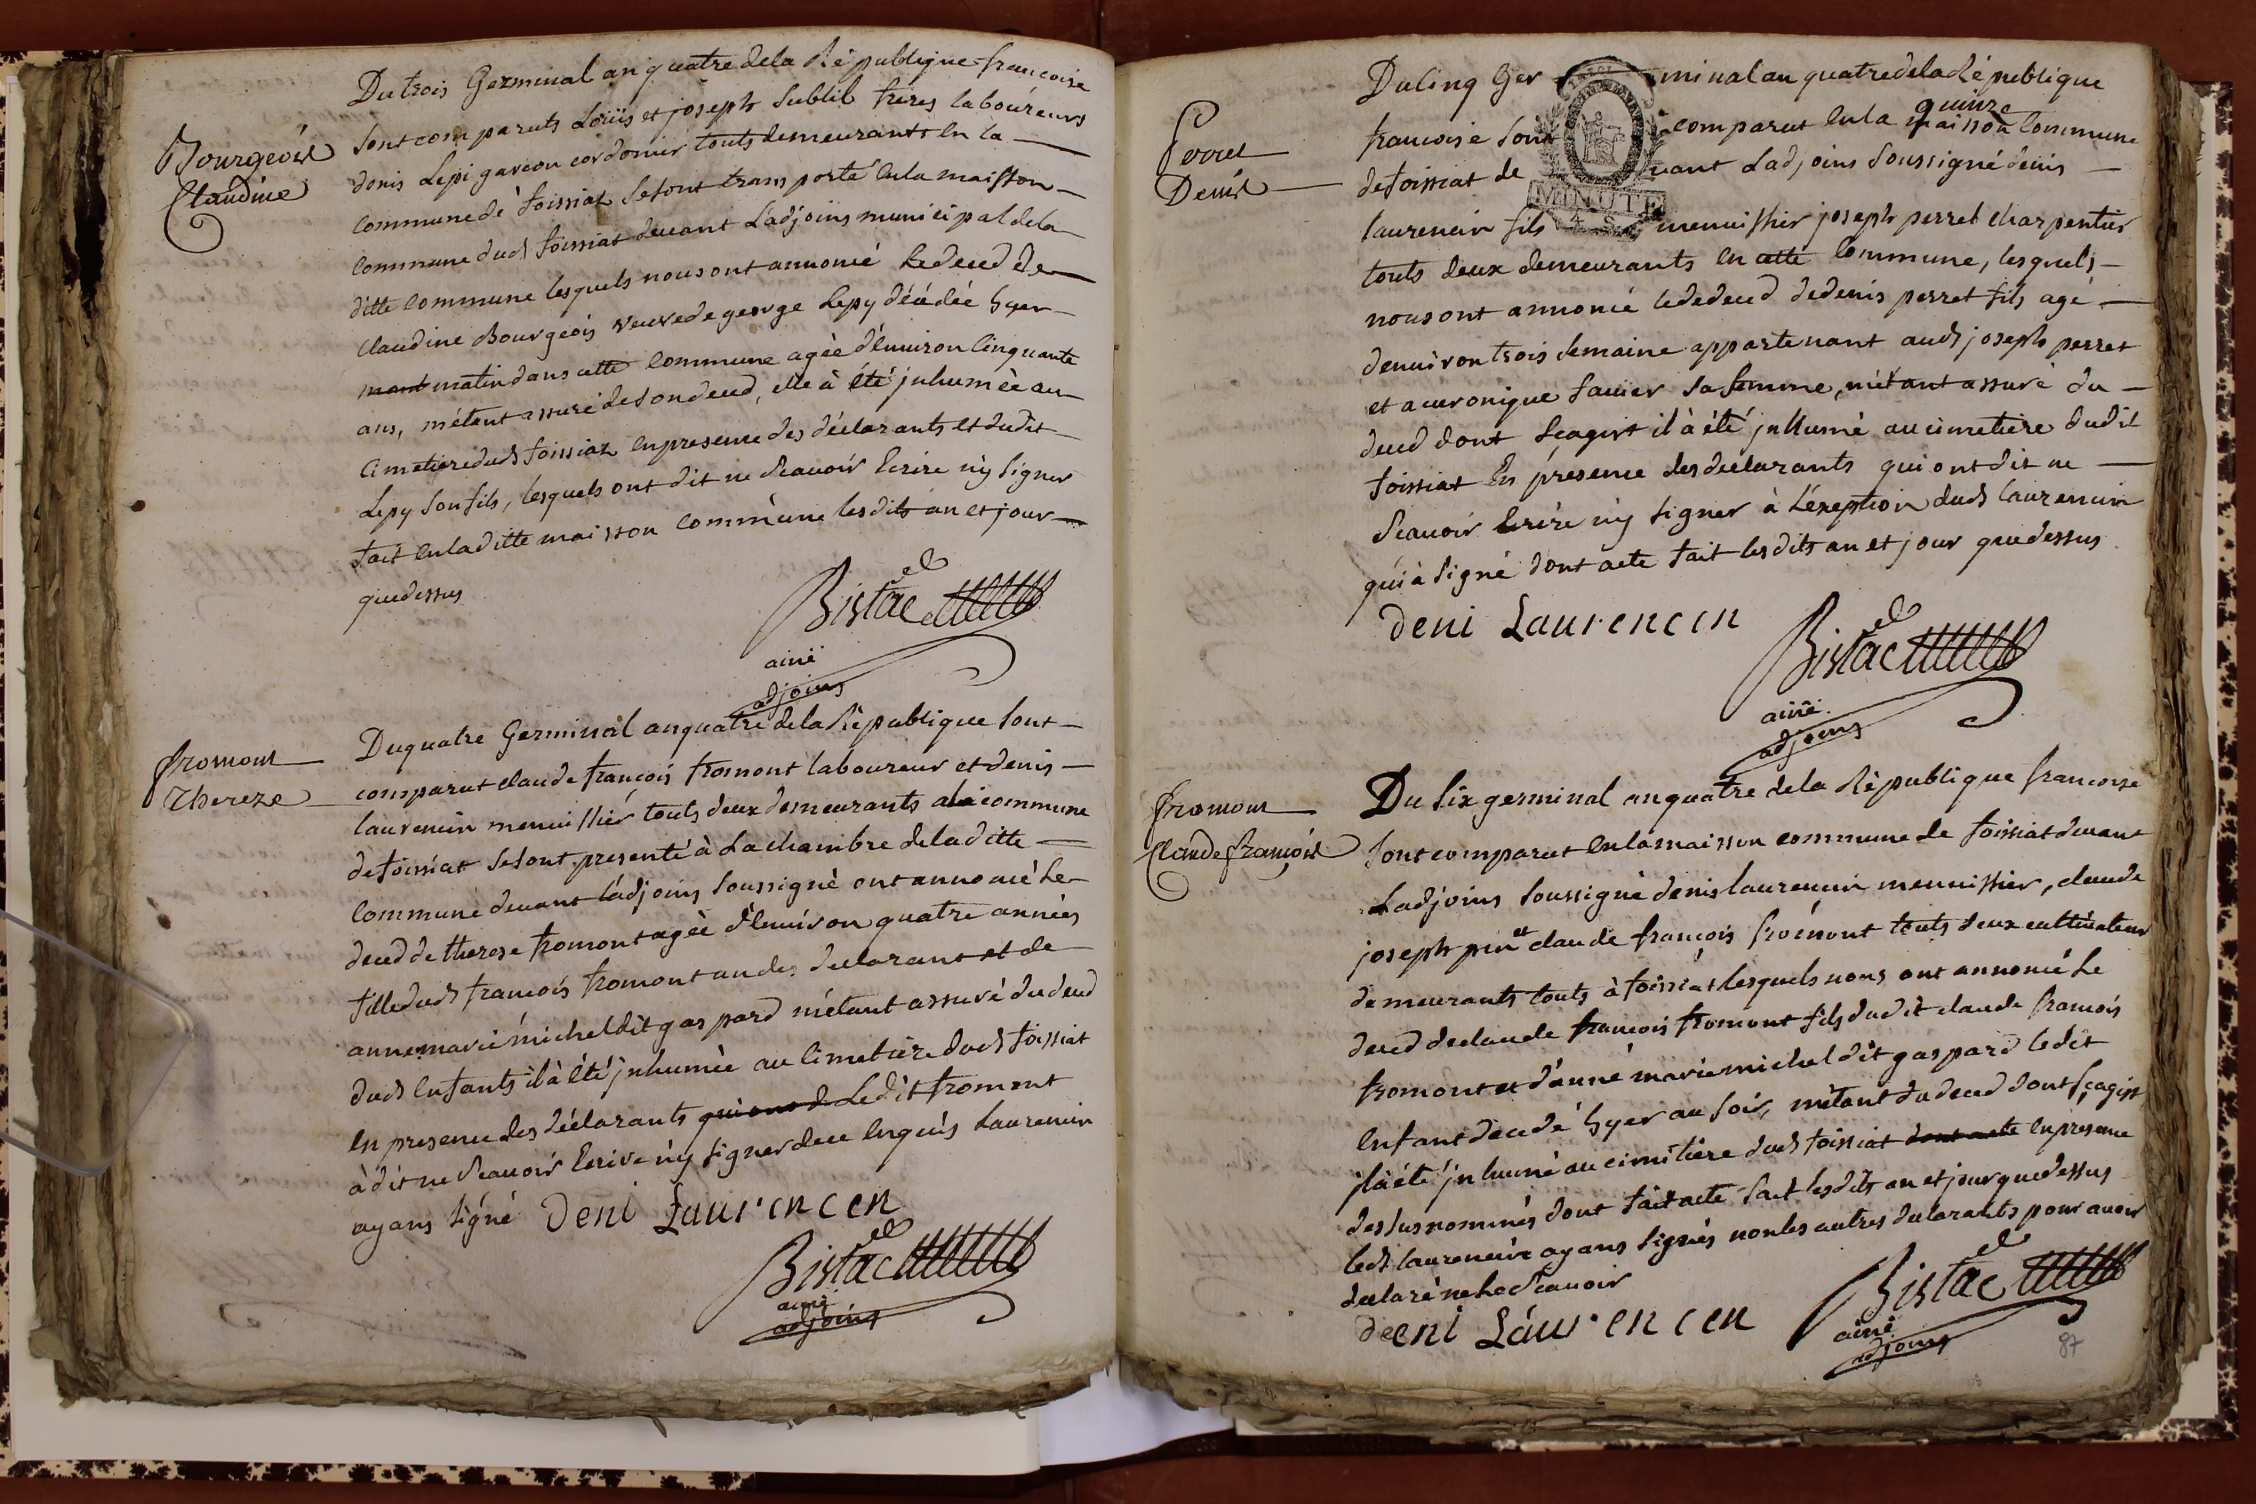 Bourgeois
Claudine
Du trois Germinal an quatre dela Republique françoise
sont comparuts Loüis et joseph Subtil freres laboureurs
donis Lepi garcon cordonier touts demeurants en la
commune de foissiat se sont transporté en la maisson
commune dud foissiat devant L'adjoins municipal dela
ditte commune lesquels nous ont annoncé Le deced de
claudine Bourgeois veuve de george Lepy décédée hyer
matin dans cette commune agée d'environ Cinquante
ans, m'étant assuré de son deced, elle à été jnhumée au
Cimetiere dud foissiat en presence des déclarants et dudit
Lepy son fils, lesquels ont dit ne Scavoir Ecrire n'y Signer
fait en laditte maisson commune lesdits an et jour
que dessus
Bistac
ainé
adjoins
fromont
thereze
Du quatre Germinal an quatre dela République sont
comparut claude françois fromont laboureur et denis
laurencin menuissier touts deux demeurants a la commune
de foissiat se sont presenté à La chambre de laditte
commune devant l'adjoins soussigné ont annoncé Le
deced de therese fromont agée d'environ quatre années
fille dud françois fromont un des declarant et de
anne marie michel dit gaspard m'étant assuré du deced
dud Enfants il à été jnhumée au Cimetière dud foissiat
en presence des déclarants qui ont d Ledit fromont
à dit ne Scavoir Ecrire n'y Signer de ce enquis Laurencin
ayans Signé Deni Laurencen
Bistac
ainé
adjoins
Perret
Denis
Du Cinq Ger minal an quatre dela Republique
francoise sont comparut en la maisson commune
quinze
de foissiat de vant Ladjoins Soussigné denis
laurencin fils menuissier joseph perret charpentier
touts deux demeurants en cette commune, lesquels
nous ont annoncé le de deced de denis perret fils agé
denviron trois Semaine appartenant aud joseph perret
et a veronique favier sa femme, m'étant assuré du
deced dont Sçagist il à été jnhumé au cimetière dudit
foissiat En presence des declarants qui ont dit ne
Scavoir Ecrire n'y Signer à L'éxeption dud laurencin
qui à Signé dont acte fait lesdits an et jour que dessus
deni Laurencen
Bistac
ainé
adjoins
fromont
Claude françois
Du Six germinal an quatre dela République francoise
sont comparut en la maisson commune de foissiat devant
Ladjoins soussigné denis laurencin menuissier, claude
joseph pin et claude francois fromont touts deux cultivateur
demeurants touts à foissiat lesquels nous ont annoncé Le
deced de claude françois fromont fils dudit claude francois
fromont et d'anne marie michel dit gaspard ledit
Enfant décédé hyer au soir, m'étant du deced dont sçagist
jl à été jnhumé au cimitière dud foissiat dont acte en presence
des susnommés dont fait acte fait lesdits an et jour que dessus
led laurencin ayans Signés non les autres declarants pour avoir
declaré ne Le Scavoir
deeni Laurencen
Bistac
ainé
adjoins
MINUTE
4 S
87